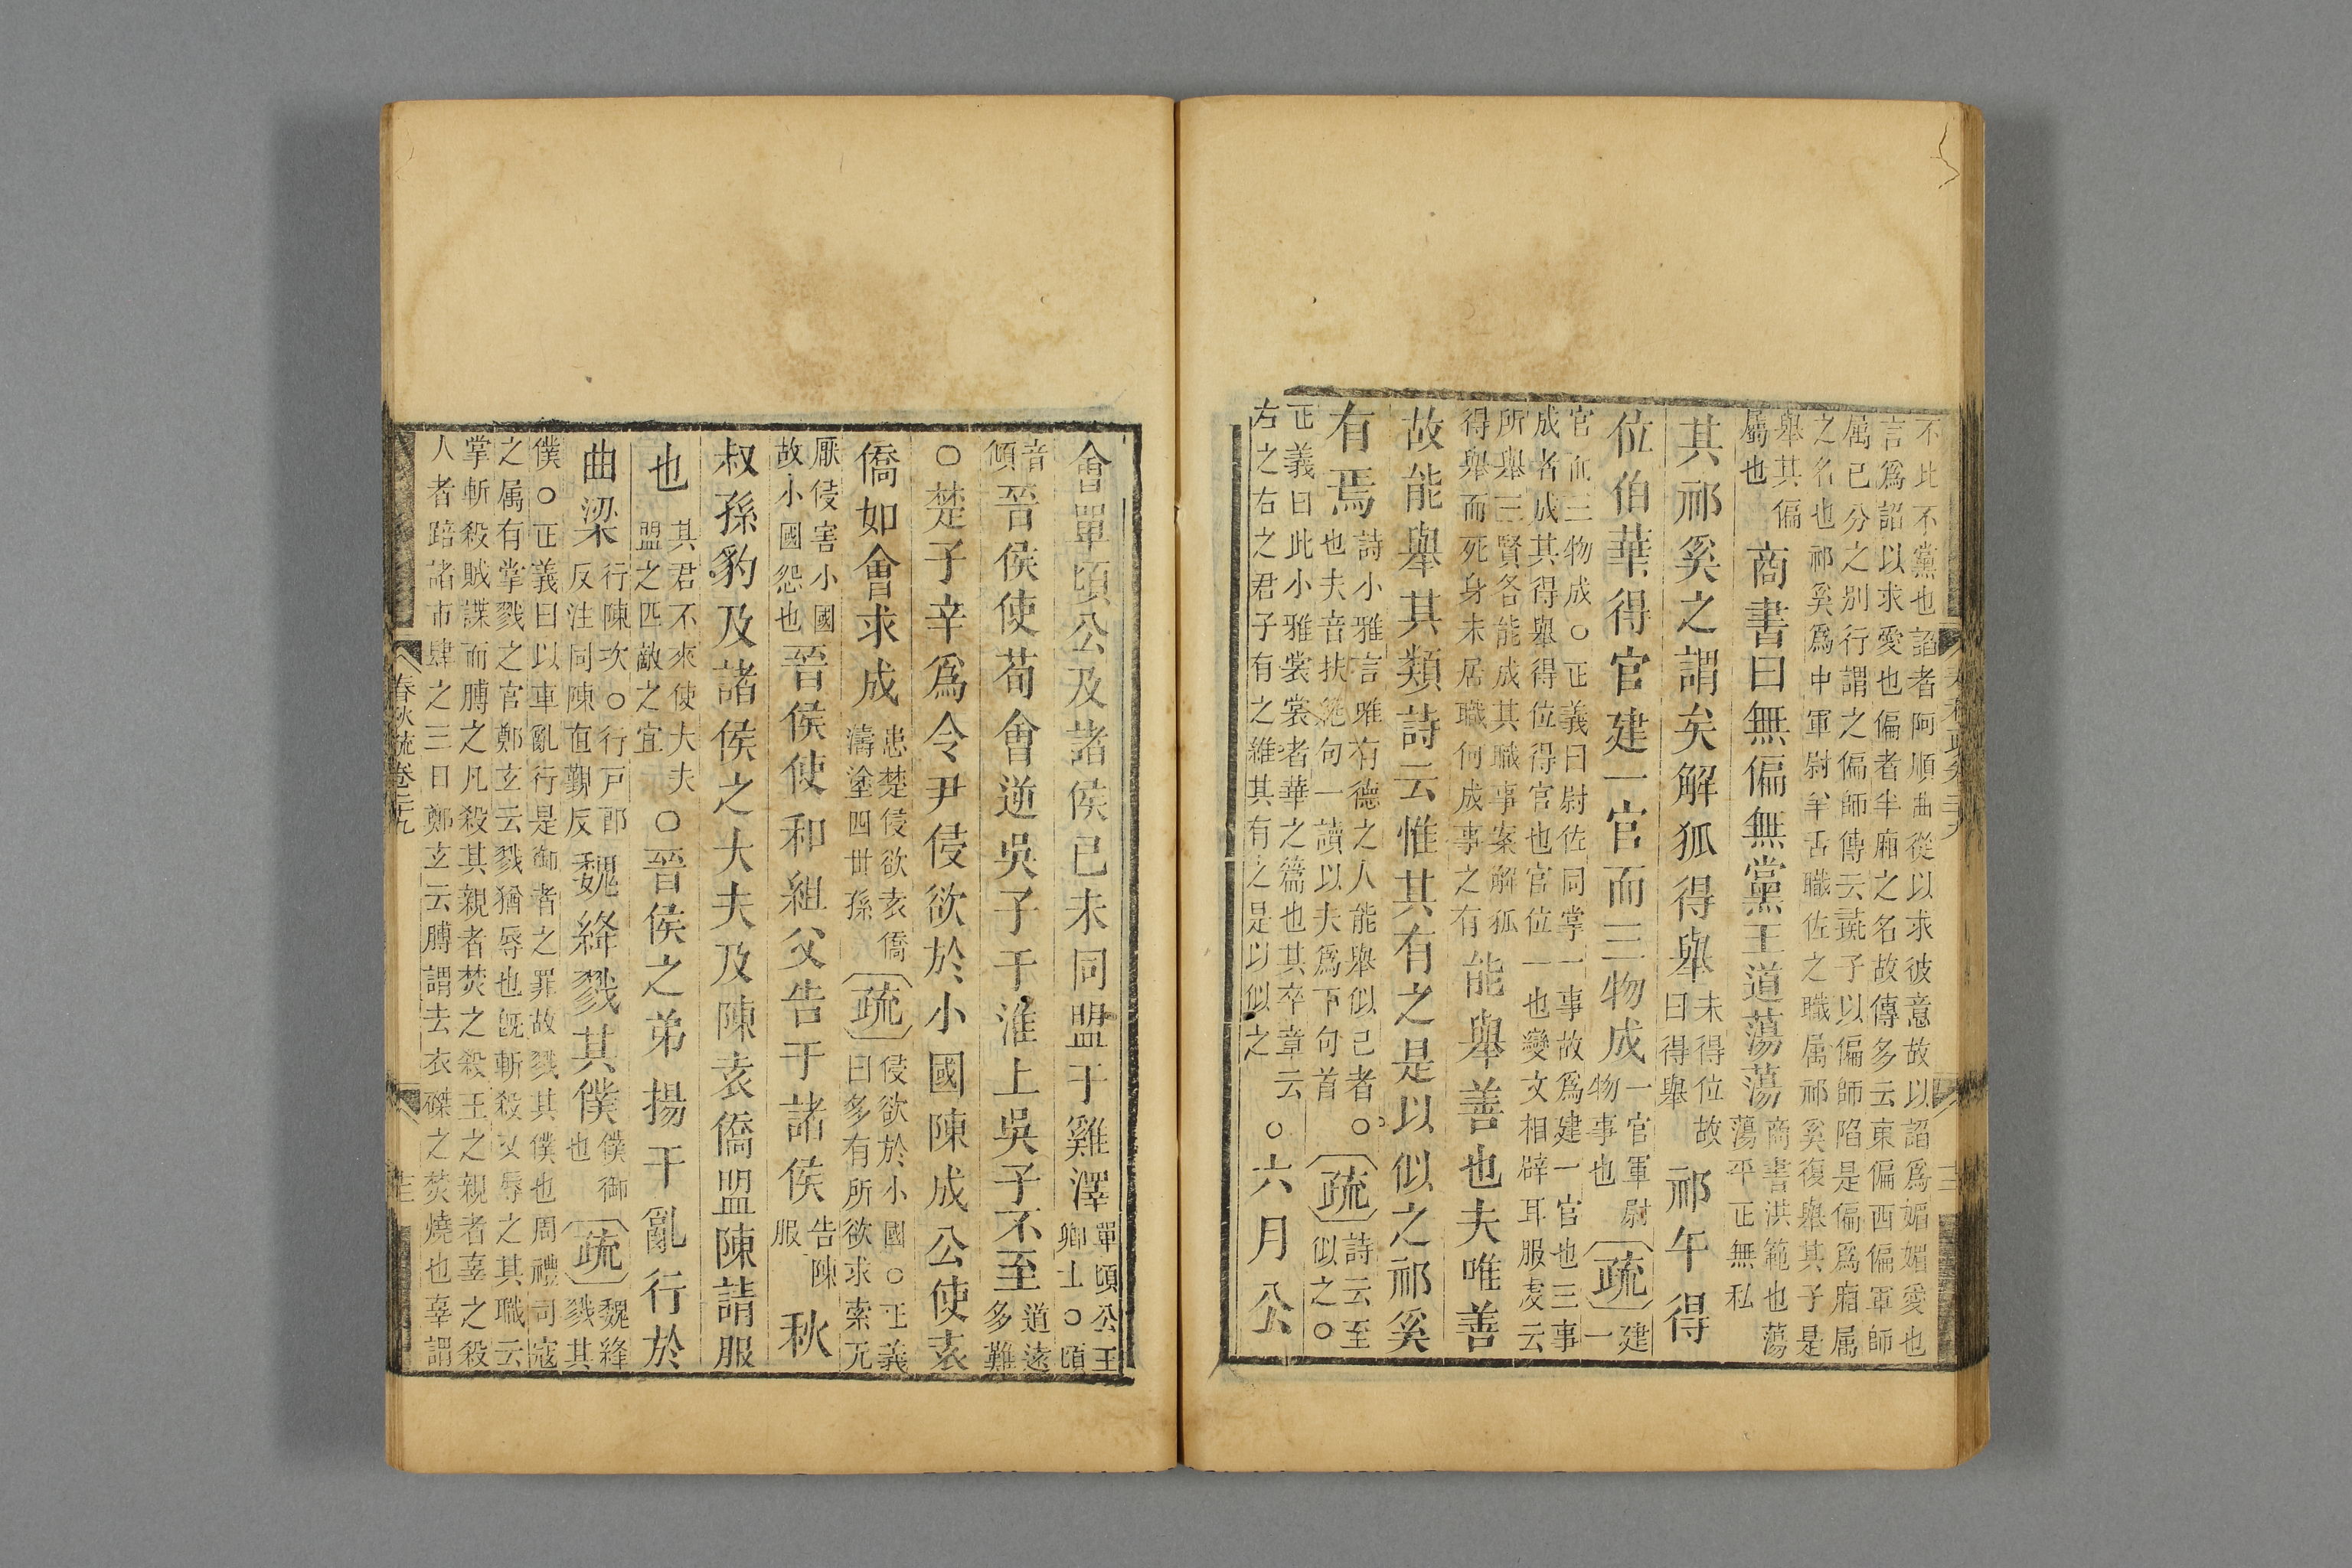 不比不黨也諂者阿順曲從以求彼意故以諂爲媚媚愛也
言爲諂以求愛也偏者半廂之名故傳多云東偏西偏軍師
属己分之别行謂之偏師傳云彘子以偏師陷是偏爲廂属
之名也祁奚爲中軍尉羊舌職佐之職属祁奚復舉其子是
舉其偏
屬也
商書曰無偏無黨王道蕩蕩
商書洪範也蕩
蕩平正無私
其祁奚之謂矣解狐得舉
未得位故
曰得舉
祁午得
位伯華得官建一官而三物成
一官軍尉
物事也
疏
建
一
官而三物成○正義曰尉佐同掌一事故爲建一官也三事
成者成其得舉得位得官也官位一也變文相辟耳服虔云
所舉三賢各能成其職事案解狐
得舉而死身未居職何成事之有
能舉善也夫唯善
故能舉其類詩云惟其有之是以似之祁奚
有焉
詩小雅言唯有德之人能舉似己者○
也夫音扶絶句一讀以夫爲下句首
疏
詩云至
似之○
正義曰此小雅裳裳者華之篇也其卒章云
右之右之君子有之維其有之是以似之
○六月公
春秋疏卷二九
會單頃公及諸侯己未同盟于雞澤
單頃公王
卿士○頃
音
傾
晉侯使荀會逆吳子于淮上吳子不至
道遠
多難
○楚子辛爲令尹侵欲於小國陳成公使袁
僑如會求成
患楚侵欲袁僑
濤塗四世孫
疏
侵欲於小國○正義
曰多有所欲求索无
厭侵害小國
故小國怨也
晉侯使和組父告于諸侯
告陳
服
秋
叔孫豹及諸侯之大夫及陳袁僑盟陳請服
也
其君不來使大夫
盟之匹敵之宜
○晉侯之弟揚干亂行於
曲梁
行陳次○行户郎
反注同陳直覲反
魏絳戮其僕
僕御
也
疏
魏絳
戮其
僕○正義曰以車亂行是御者之罪故戮其僕也周禮司寇
之属有掌戮之官鄭玄云戮猶辱也既斬殺又辱之其職云
掌斬殺賊諜而膊之凡殺其親者焚之殺王之親者辜之殺
人者踣諸市肆之三日鄭玄云膊謂去衣磔之焚燒也辜謂
春秋疏卷二九